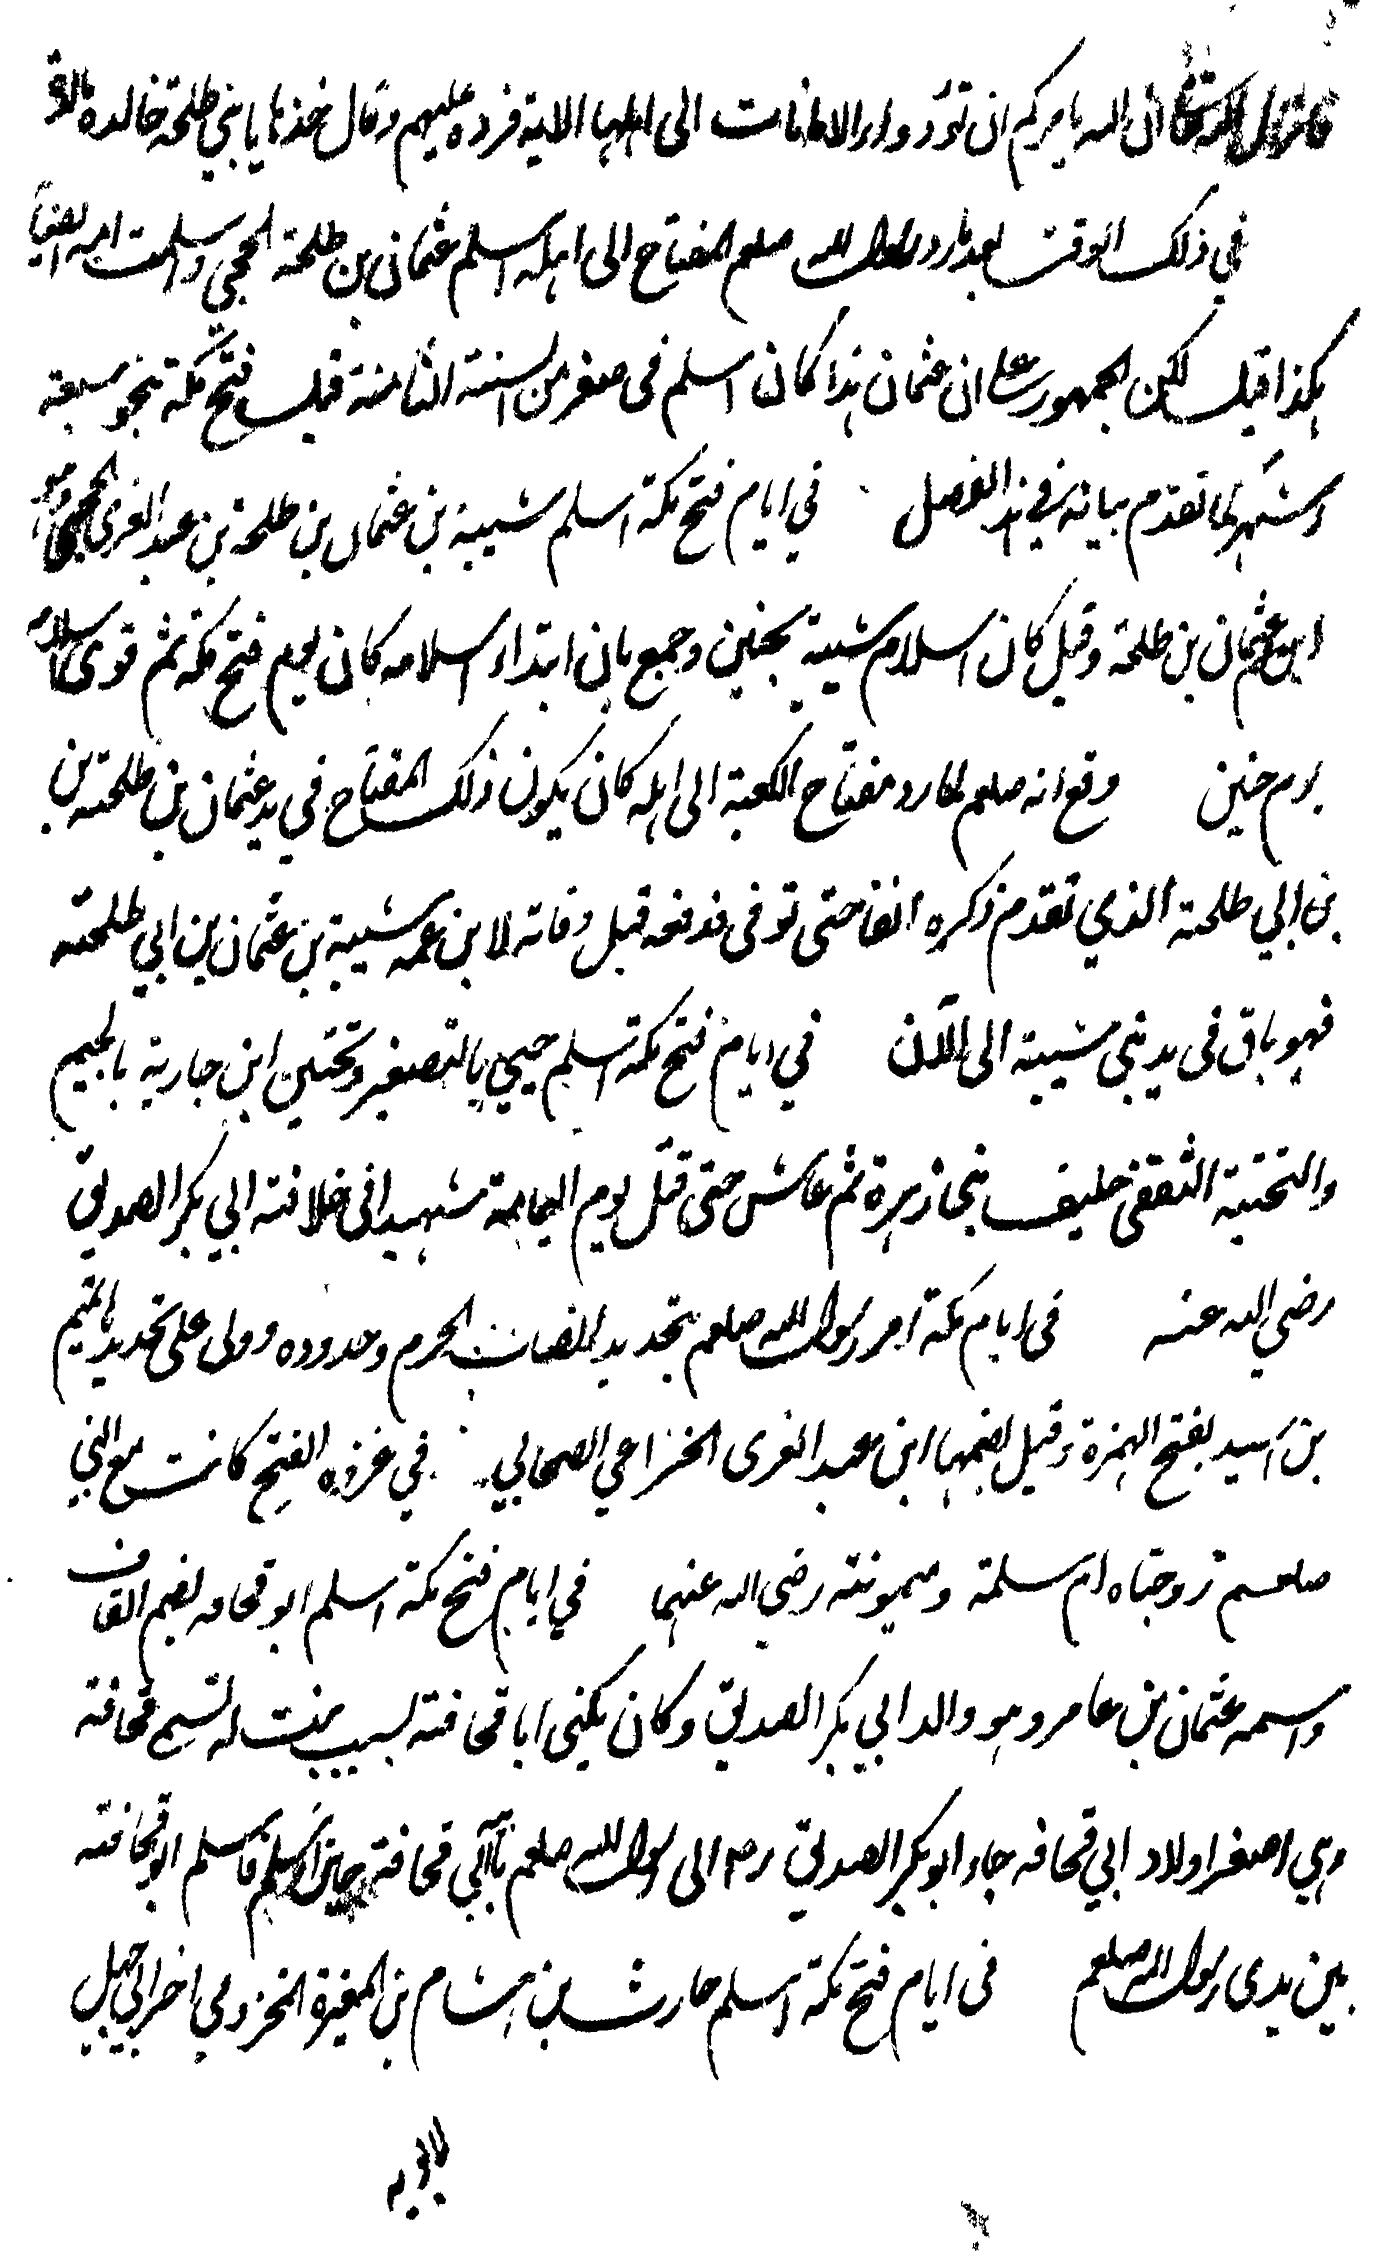 فانزل الله تعالى ان الله يامركم ان تؤدوا الامانات الى اهلها الاية فرده عليهم وقال خذها يا بني طلحة خالدة تالدة
في ذلك الوقت بعد ما رد رسول الله صلعم المفتاح الى اهله اسلم عثمان بن طلحة الحجبي واسلمت امه ايضا
هكذا قيل لكن الجمهور على ان عثمان هذا كان اسلم في صفر من السنة الثامنة قبل فتح مكة بنحو سبعة
اشهر كما تقدم بيانه في هذا الفصل في ايام فتح مكة اسلم شيبة بن عثمان بن طلحة بن عبد العزى الحجبي وهو
ابن عم عثمان بن طلحة وقيل كان اسلام شيبة بحنين وجمع بان ابتداء اسلامه كان يوم فتح مكة ثم قوى اسلامه
يوم حنين وقع انه صلعم لما رد مفتاح الكعبة الى اهله كان يكون ذلك المفتاح في يد عثمان بن طلحة بن
بن ابي طلحة الذي تقدم ذكره انفا حتى توفى فدفعه قبل وفاته لابن عمه شيبة بن عثمان بن ابي طلحة
فهو باق في يد بني شيبة الى الآن في ايام فتح مكة اسلم حيي بالتصغير وتحتين ابن جارية بالجيم
والتحتية الثقفي حليف بني زهرة ثم عاش حتى قتل يوم اليمامة شهيدا في خلافة ابي بكر الصديق
رضي الله عنه في ايام مكة امر رسول الله صلعم بتجديد انصاب الحرم وحدوده وولى على تحديدها تميم
بن اسيد بفتح الهمزة وقيل بضمها ابن عبد العزى الخزاعي الصحابي في غزوة الفتح كانت مع النبي
صلعم زوجتاه ام سلمة وميمونة رضي الله عنهما في ايام فتح مكة اسلم ابو قحافه بضم القاف
واسمه عثمان بن عامر وهو والد ابي بكر الصديق وكان يكنى ابا قحافة لسبب بنت له تسمى قحافة
وهي اصغر اولاد ابي قحافه جاء ابو بكر الصديق رض الى رسول الله صلعم بابي قحافة فاسلم ابو قحافة
بين يدى رسول الله صلعم في ايام فتح مكة اسلم حارث بن هشام بن المغيرة المخزومي اخو ابي جهل